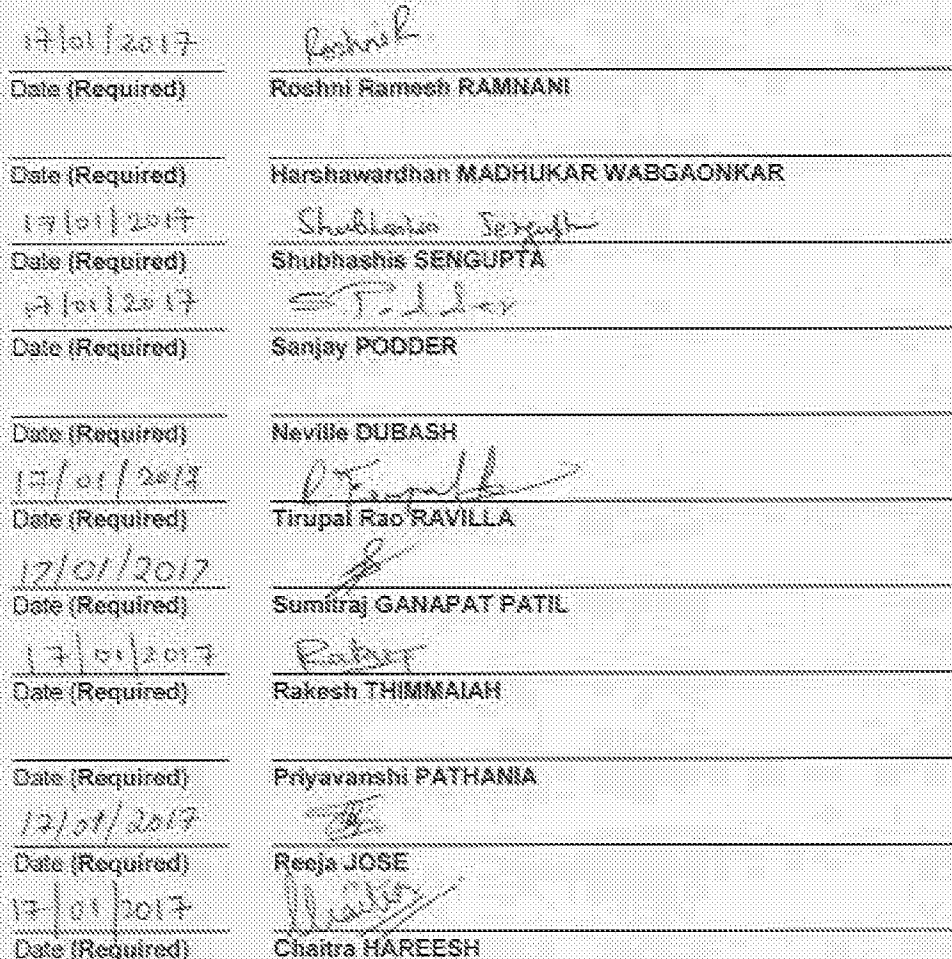 17/01/2017 Roshni R
Date (Required) Roshni Ramesh RAMNANI
Date (Required) Harshawardhan MADHUKAR WABGAONKAR
17/01/2017 Shubhashis Sengupta
Date (Required) Shubhashis SENGUPTA
17/01/2017
Date (Required) Sanjay PODDER
Date (Required) Neville DUBASH
17/01/2017
Date (Required) Tirupal Rao RAVILLA
17/01/2017
Date (Required) Sumitraj GANAPAT PATIL
17/01/2017
Date (Required) Rakesh THIMMAIAH
Date (Required) Priyavanshi PATHANIA
17/01/2017
Date (Required) Reeja JOSE
17/01/2017
Date (Required) Chaitra HAREESH